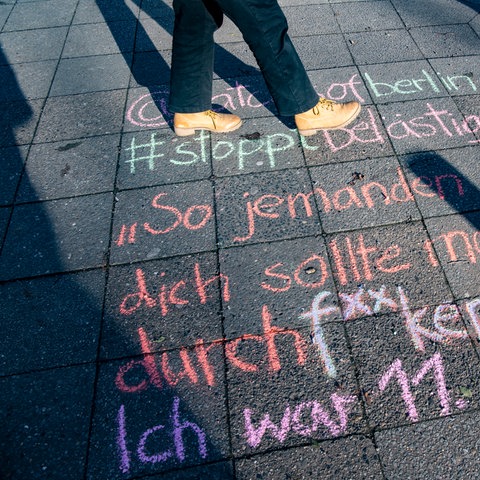 @catc of berlin
#stoppt Belästig
„So jemanden w
dich sollte ma
durch fxxken
Ich war 11.